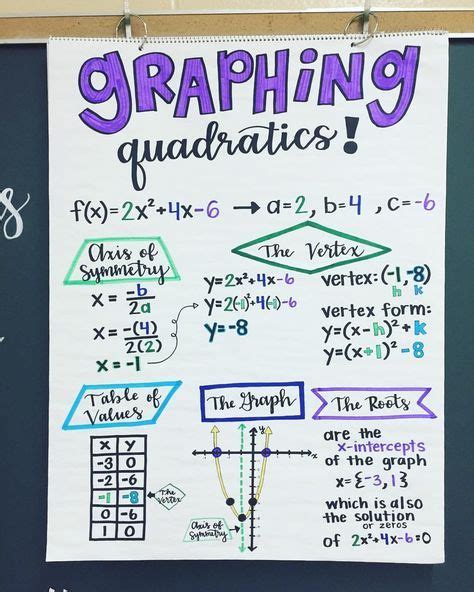 GRAPHING
quadratics!
f(x)=2x²+4x-6 → a=2, b=4, c=-6
Axis of
Symmetry
x = -b/2a
x = -(4)/2(2)
x = -1
The Vertex
y=2x²+4x-6
y=2(-1)²+4(-1)-6
y=-8
vertex: (-1,-8)
h k
vertex form:
y=(x-h)²+k
y=(x+1)²-8
Table of
Values
x y
-3 0
-2 -6
-1 -8
0 -6
1 0
The
Vertex
The Graph
y
x
Axis of
Symmetry
The Roots
are the
x-intercepts
of the graph
x={-3,1}
which is also
the solution
or zeros
of 2x²+4x-6=0